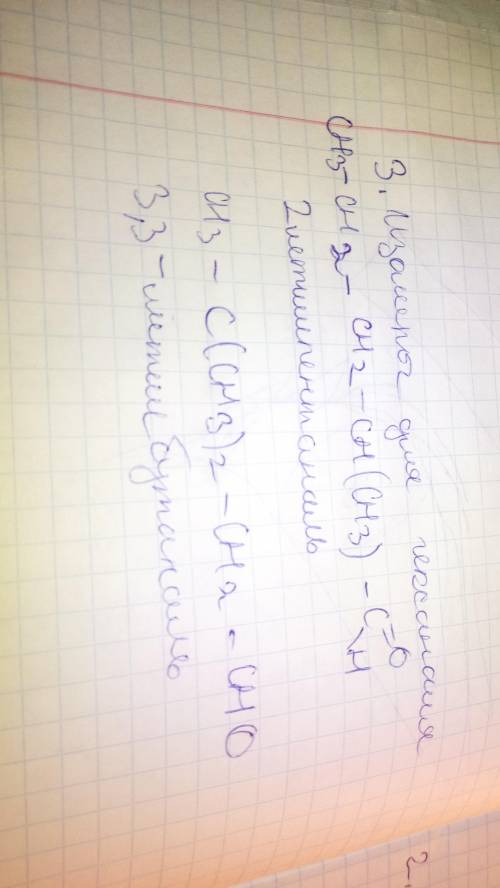 3. Изомеры для гексаналя
CH3 - CH2 - CH2 - CH(CH3) - C=O
H
2 метилпентаналь
CH3 - C(CH3)2 - CH2 - CHO
3,3 - метил бутаналь
2